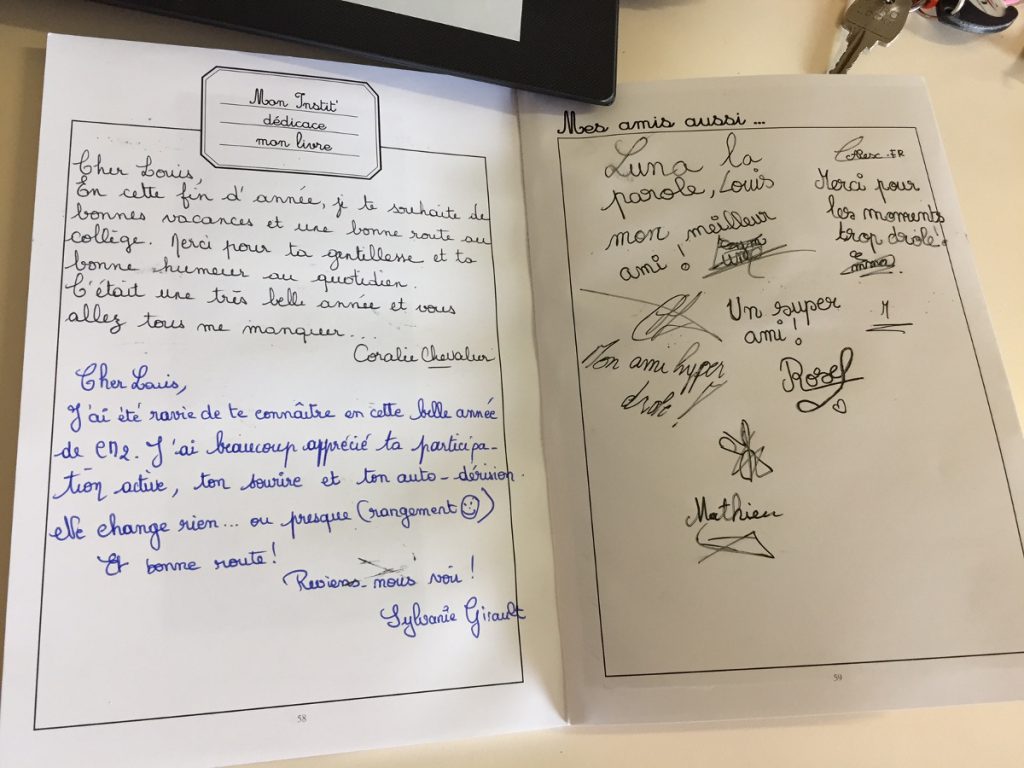 Mon Instit'
dédicace
mon livre
Cher Louis,
En cette fin d'année, je te souhaite de
bonnes vacances et une bonne route au
collège. Merci pour ta gentillesse et ta
bonne humeur au quotidien.
C'était une très belle année et vous
allez tous me manquer...
Coralie Chevalier
Cher Louis,
J'ai été ravie de te connaître en cette belle année
de CM2. J'ai beaucoup apprécié ta participa-
tion active, ton sourire et ton auto-dérision.
Ne change rien... ou presque (rangement ☺)
Et bonne route!
Reviens-nous voir!
Sylvanie Girault
58
Mes amis aussi ...
Luna la
parole, Louis
mon meilleur
ami!
Merci pour
les moments
trop drole!
Emma.
Un super
ami!
Mon ami hyper
drole!
Rose
Mathieu
59